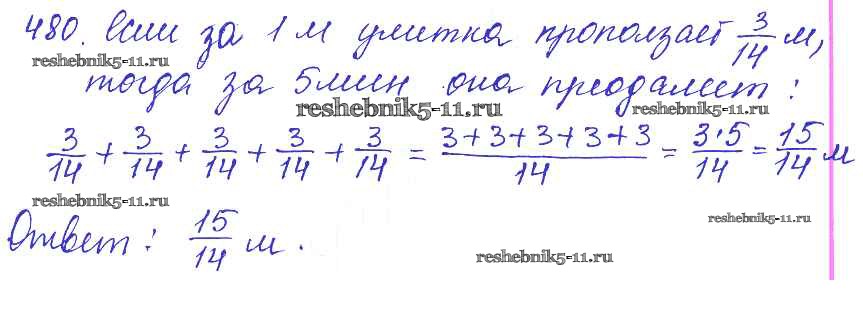 480. Если за 1 м улитка проползает 3/14 м,
reshebnik5-11.ru
тогда за 5 мин она преодалеет:
reshebnik5-11.ru reshebnik5-11.ru
3/14 + 3/14 + 3/14 + 3/14 + 3/14 = 3+3+3+3+3/14 = 3·5/14 = 15/14 м
reshebnik5-11.ru
reshebnik5-11.ru
Ответ: 15/14 м.
reshebnik5-11.ru